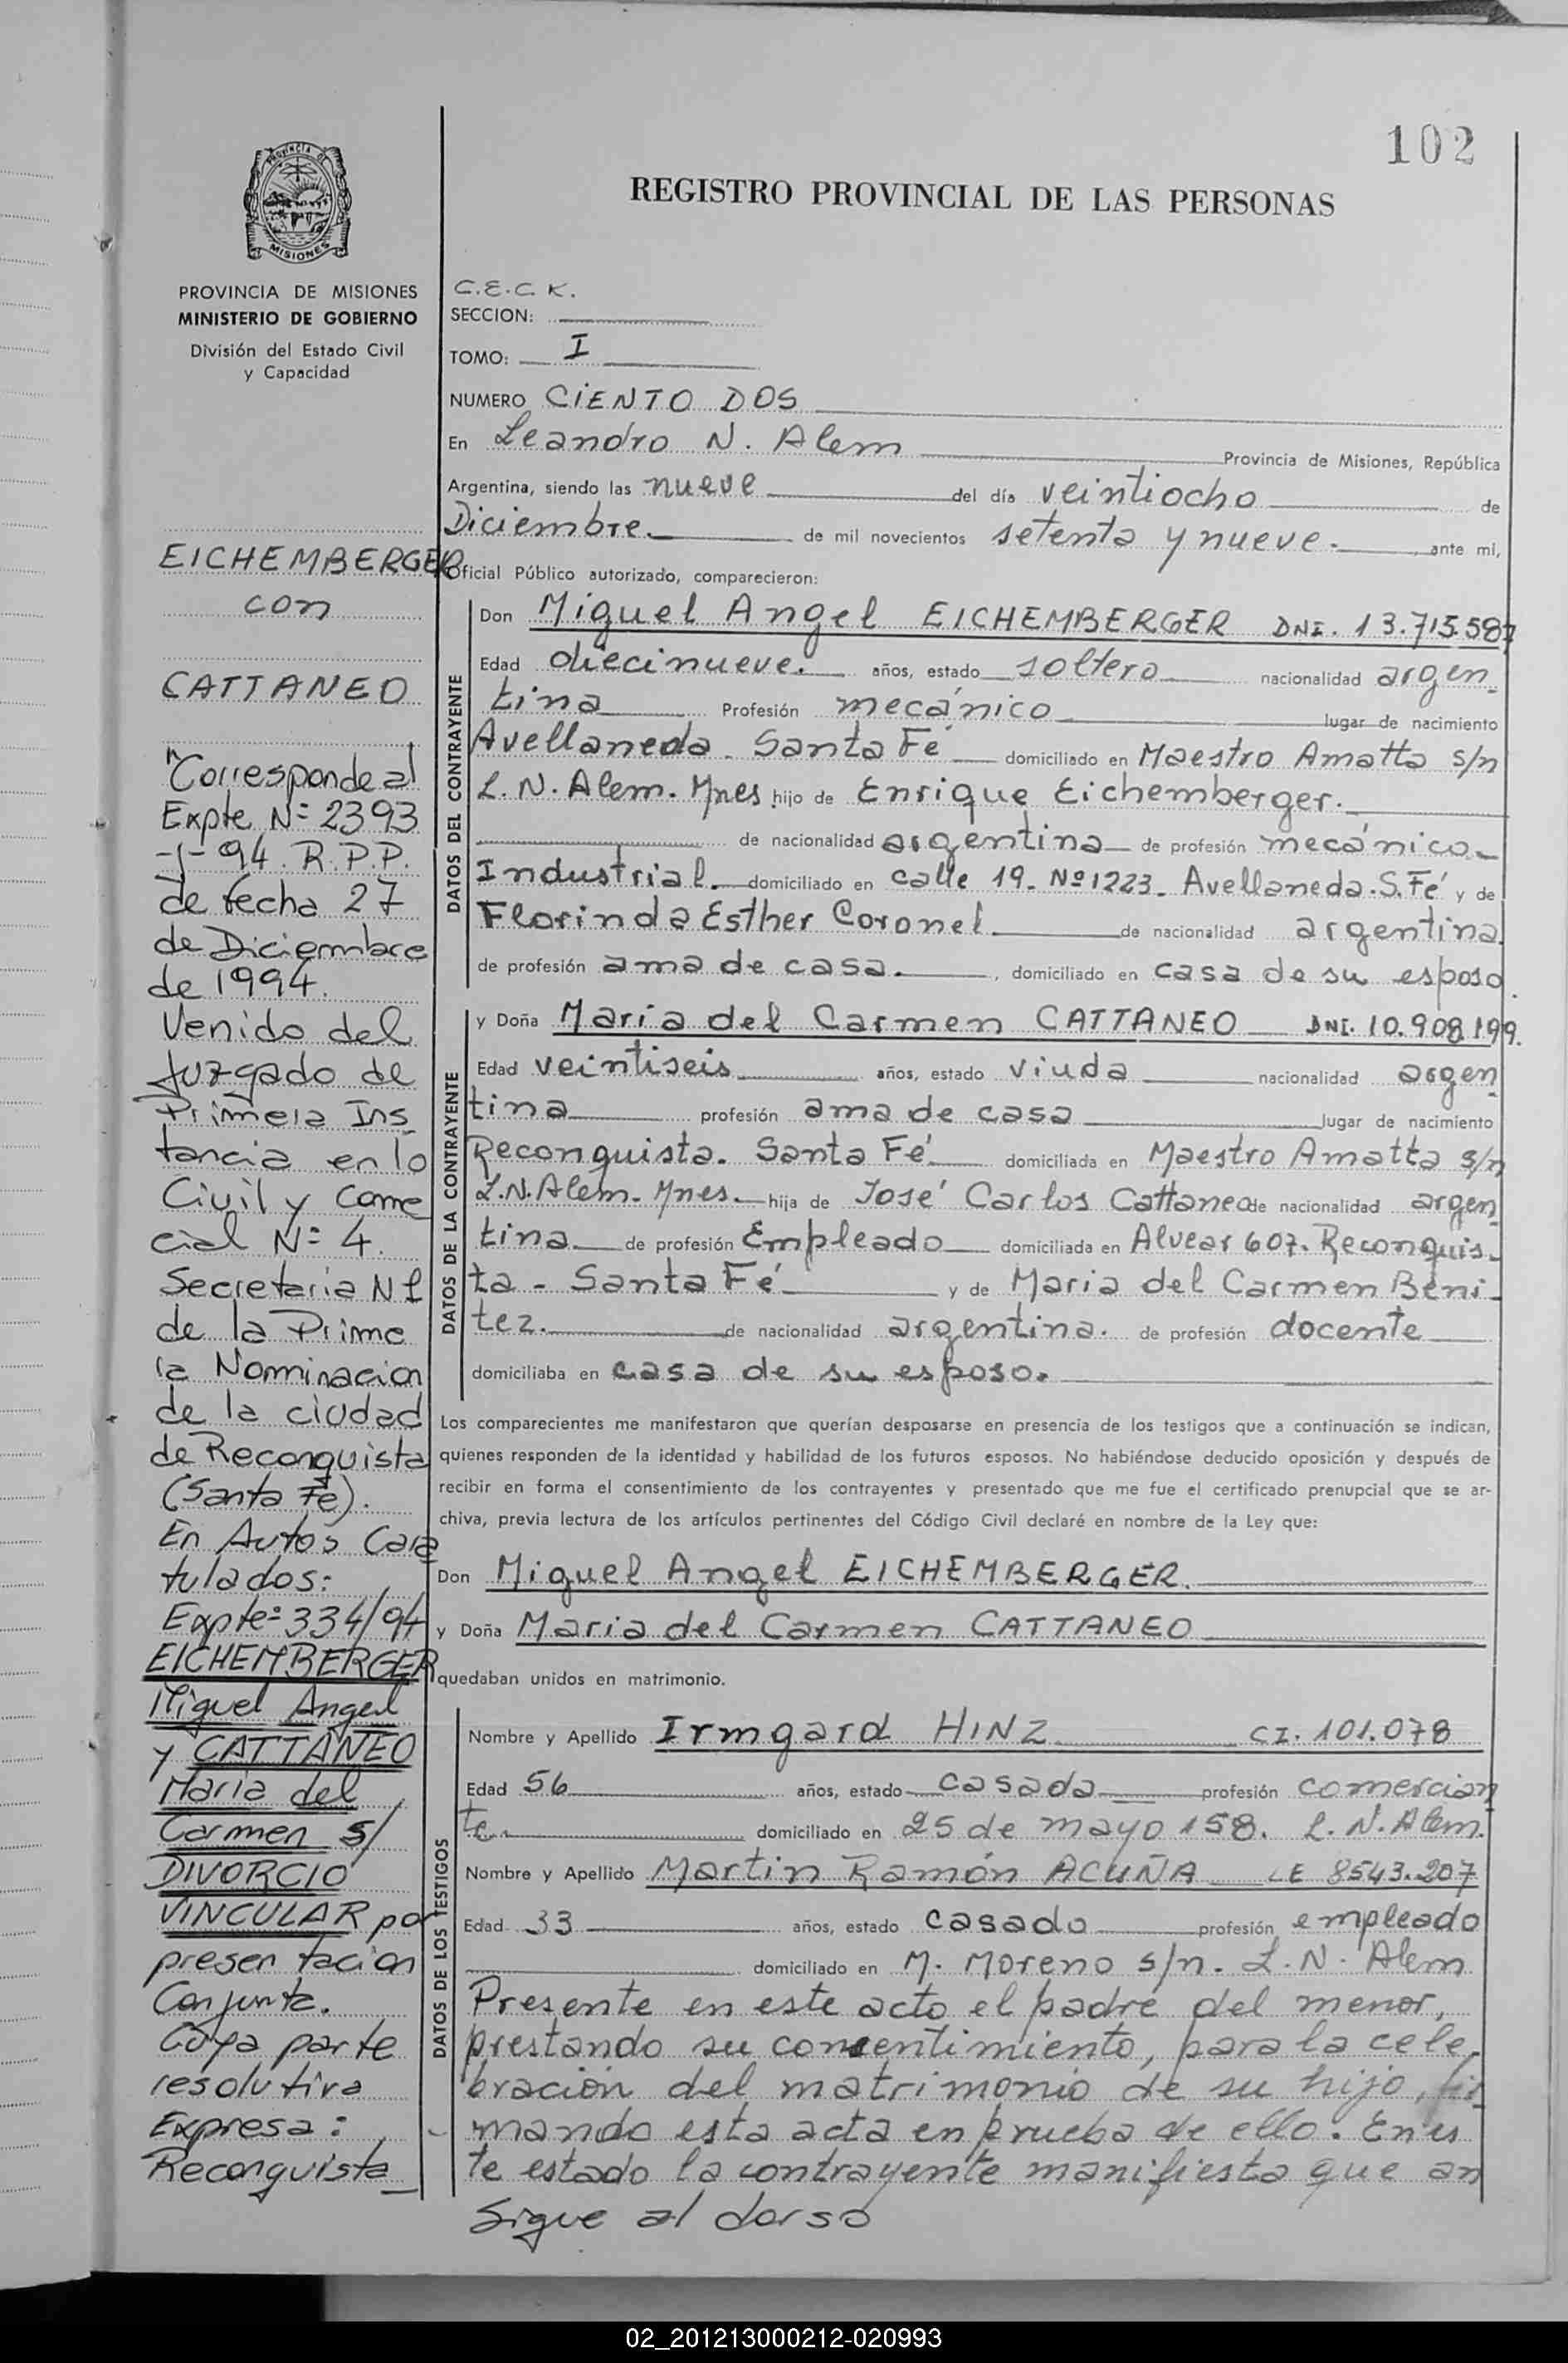 102
REGISTRO PROVINCIAL DE LAS PERSONAS
PROVINCIA DE
MISIONES
PROVINCIA DE MISIONES
MINISTERIO DE GOBIERNO
División del Estado Civil
y Capacidad
EICHEMBERGER
con
CATTANEO
"Corresponde al
Expte. Nº 2393
-I- 94. R.P.P.
de fecha 27
de Diciembre
de 1994.
Venido del
Juzgado de
Primera Ins
tancia en lo
Civil y Come
cial Nº 4.
Secretaria N 1
de la Prime
ra Nominacion
de la ciudad
de Reconquista
(Santa Fe).
En Autos Cara
tulados:
Expte: 334/94
EICHEMBERGER
Miguel Angel
y CATTANEO
Maria del
Carmen S/
DIVORCIO
VINCULAR por
presentacion
Conjunta.
Cuya parte
resolutiva
Expresa:
Reconquista_
C.E.C.K.
SECCION:
TOMO: I
NUMERO CIENTO DOS
En Leandro N. Alem Provincia de Misiones, República
Argentina, siendo las nueve del día veintiocho de
Diciembre. de mil novecientos setenta y nueve. ante mí,
Oficial Público autorizado, comparecieron:
DATOS DEL CONTRAYENTE
Don Miguel Angel EICHEMBERGER DNI. 13.715.587
Edad diecinueve. años, estado soltero nacionalidad argen_
tina Profesión mecánico lugar de nacimiento
Avellaneda - Santa Fé domiciliado en Maestro Amatta s/n
L. N. Alem. Mnes hijo de Enrique Eichemberger.
de nacionalidad argentina de profesión mecánico_
Industrial. domiciliado en calle 19. Nº 1223. Avellaneda. S. Fé y de
Florinda Esther Coronel. de nacionalidad argentina
de profesión ama de casa. , domiciliado en casa de su esposo.
DATOS DE LA CONTRAYENTE
y Doña Maria del Carmen CATTANEO DNI. 10.908.199.
Edad veintiseis años, estado viuda nacionalidad argen
tina profesión ama de casa lugar de nacimiento
Reconquista. Santa Fé domiciliada en Maestro Amatta s/n
L.N. Alem. Mnes. hija de José Carlos Cattaneo de nacionalidad argen_
tina de profesión Empleado domiciliada en Alvear 607. Reconquis_
ta - Santa Fé y de Maria del Carmen Beni_
tez. de nacionalidad argentina. de profesión docente
domiciliaba en casa de su esposo.
Los comparecientes me manifestaron que querían desposarse en presencia de los testigos que a continuación se indican,
quienes responden de la identidad y habilidad de los futuros esposos. No habiéndose deducido oposición y después de
recibir en forma el consentimiento de los contrayentes y presentado que me fue el certificado prenupcial que se ar-
chiva, previa lectura de los artículos pertinentes del Código Civil declaré en nombre de la Ley que:
Don Miguel Angel EICHEMBERGER.
y Doña Maria del Carmen CATTANEO
quedaban unidos en matrimonio.
DATOS DE LOS TESTIGOS
Nombre y Apellido Irmgard HINZ CI. 101.078
Edad 56 años, estado casada profesión comercian
te. domiciliado en 25 de mayo 158. L. N. Alem.
Nombre y Apellido Martin Ramón ACUÑA LE 8543.207
Edad 33 años, estado casado profesión empleado
domiciliado en M. Moreno s/n. L. N. Alem
Presente en este acto el padre del menor,
prestando su consentimiento, para la cele_
bración del matrimonio de su hijo, fir_
mando esta acta en prueba de ello. En es
te estado la contrayente manifiesta que an
Sigue al dorso
02_201213000212-020993